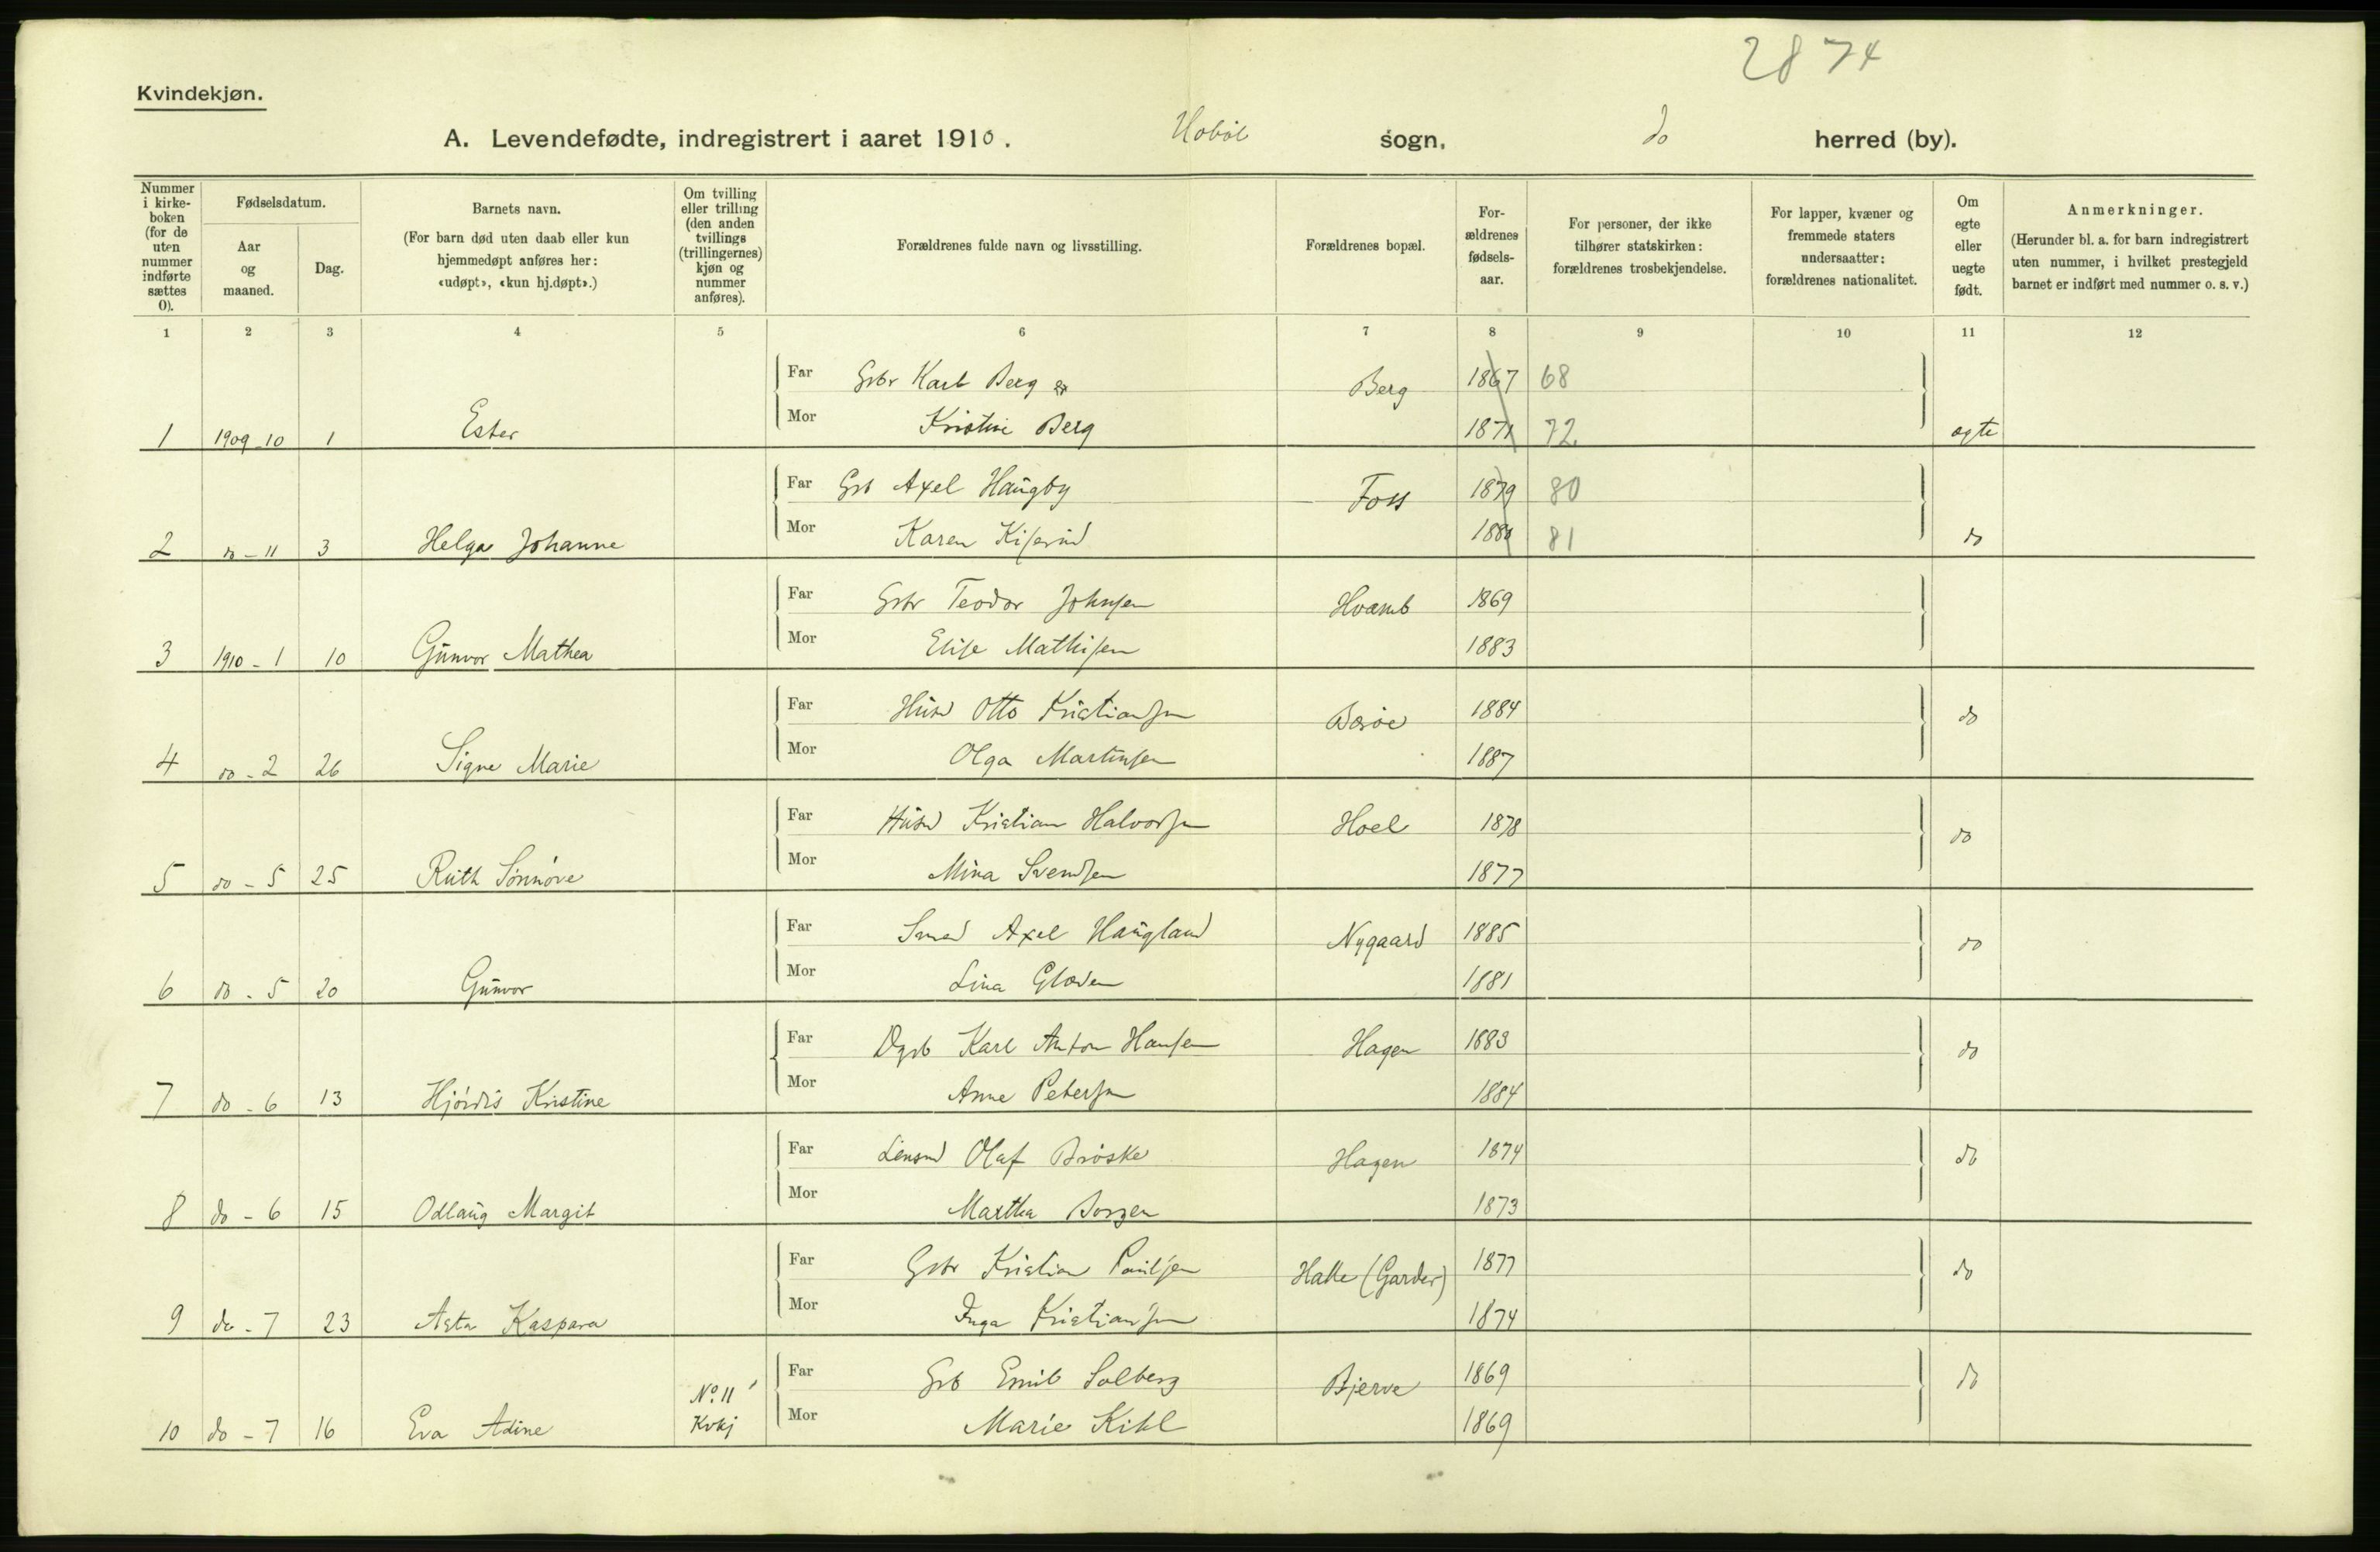 2874
Kvindekjøn.
A. Levendefødte, indregistrert i aaret 1910. Hobøl sogn, do herred (by).
Nummer i kirke-boken (for de uten nummer indførte sættes 0).
Fødselsdatum.
Aar og maaned.
Dag.
Barnets navn.
(For barn død uten daab eller kun hjemmedøpt anføres her: «udøpt», «kun hj.døpt».)
Om tvilling eller trilling (den anden tvillings (trillingernes) kjøn og nummer anføres).
Forældrenes fulde navn og livsstilling.
Forældrenes bopæl.
For-ældrenes fødsels-aar.
For personer, der ikke tilhører statskirken: forældrenes trosbekjendelse.
For lapper, kvæner og fremmede staters undersaatter: forældrenes nationalitet.
Om egte eller uegte født.
Anmerkninger.
(Herunder bl. a. for barn indregistrert uten nummer, i hvilket prestegjeld barnet er indført med nummer o. s. v.)
1 2 3 4 5 6 7 8 9 10 11 12
Far Gbr Karl Berg Berg 1867 68
1 1909-10 1 Ester Mor Kristine Berg 1871 72 egte
Far Gb Axel Haugby Foss 1879 80
2 do-11 3 Helga Johanne Mor Karen 1880 81 do
Far Gbr Teodor Johnsen Hvamb 1869
3 1910-1 10 Gunvor Mathea Mor Elise Mathisen 1883
Far Husm Otto Kristiansen 1884 do
4 do-2 26 Signe Marie Mor Olga Martinsen 1887
Far Husm Kristian Halvorsen Hoel 1878 do
5 do-5 25 Ruth Sønnøve Mor Mina Svendsen 1877
Far Smed Axel Haugland Nygaard 1885 do
6 do-5 20 Gunvor Mor Lina 1881
Far Karl Anton Hansen Hagen 1883 do
7 do-6 13 Hjördis Kristine Mor Anne Petersen 1884
Far Lensm Olaf Brøske Hagen 1874 do
8 do-6 15 Odlaug Margit Mor Martha Borgen 1873
Far Gbr Kristian Paulsen Halle (Garder) 1877 do
9 do-7 23 Asta Kaspara Mor Inga Kristiansen 1874
Far Gb Emil Solberg Bjerve 1869 do
10 do-7 16 Eva Adine No 11 Kvkj Mor Marie Kihl 1869